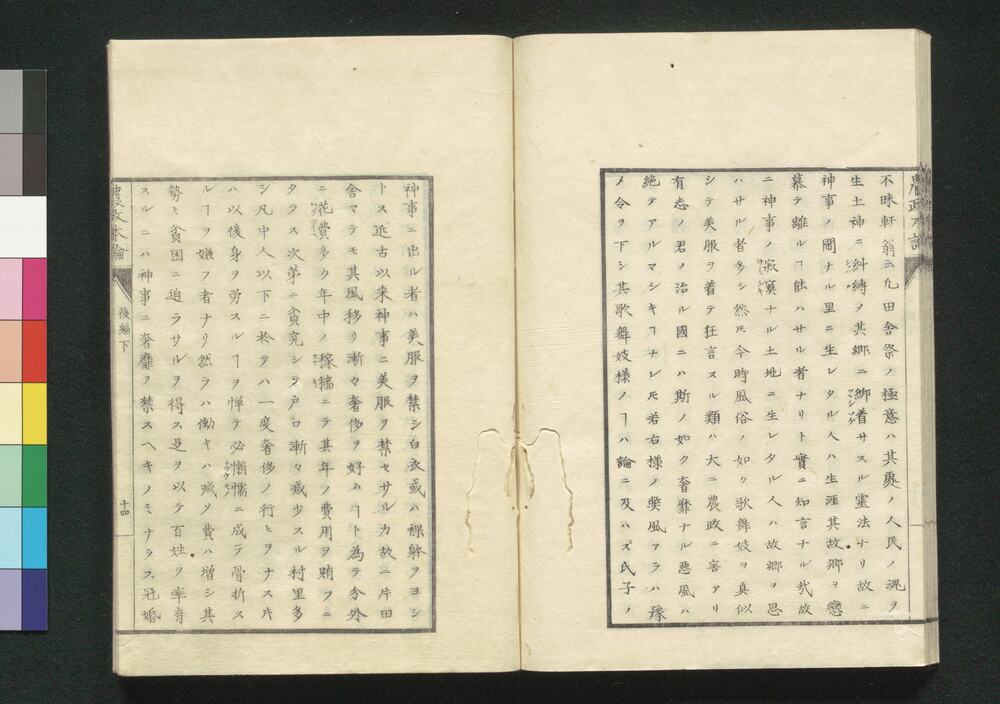 不昧軒翁云凢田舎祭ノ極意ハ其處ノ人民ノ魂ヲ
生土神ニ糾縛ヲ其郷ニ綁着サスル霊法ナリ故ニ
神事ノ閙ナル里ニ生レタル人ハ生涯其故郷ヲ戀
慕テ離ルヿ能ハサル者ナリト實ニ知言ナル㢤故
ニ神事ノ寂寞ナル土地ニ生レタル人ハ故郷ヲ思
ハサル者多シ然𪜈今時風俗ノ如ク歌舞妓ヲ真似
シテ美服ヲ着テ狂言スル類ハ大ニ農政ニ害アリ
有志ノ君ノ治ル國ニハ斯ノ如ク奢靡ナル悪風ハ
絶テアルマシキヿナレ𪜈若右様ノ獘風アラハ豫
メ令ヲ下シ其歌舞妓様ノヿハ論ニ及ハズ氏子ノ
神事ニ出ル者ハ美服ヲ禁シ白衣或ハ裸躰ヲヨシ
トス近古以来神事ニ美服ヲ禁セサルカ故ニ片田
舎マテモ其風移リ漸々奢侈ヲ好ムヿト為テ分外
ニ花費多ク年中ノ稼穡ニテ其年ノ費用ヲ賄フニ
タラス次第ニ貧究シテ戸口漸々減少スル村里多
シ凡中人以下ニ於テハ一度奢侈ノ行ヒヲナス片
ハ以後身ヲ労スルヿヲ憚テ必懶懦ニ成テ骨折ス
ルヿヲ嫌フ者ナリ然ラハ働キハ減ソ費ハ増シ其
勢ヒ貧困ニ迫ラサルヲ得ス是ヲ以テ百姓ヲ率育
スルニハ神事ニ奢靡ヲ禁スヘキノミナラス冠婚
農政本論
後編下
十四